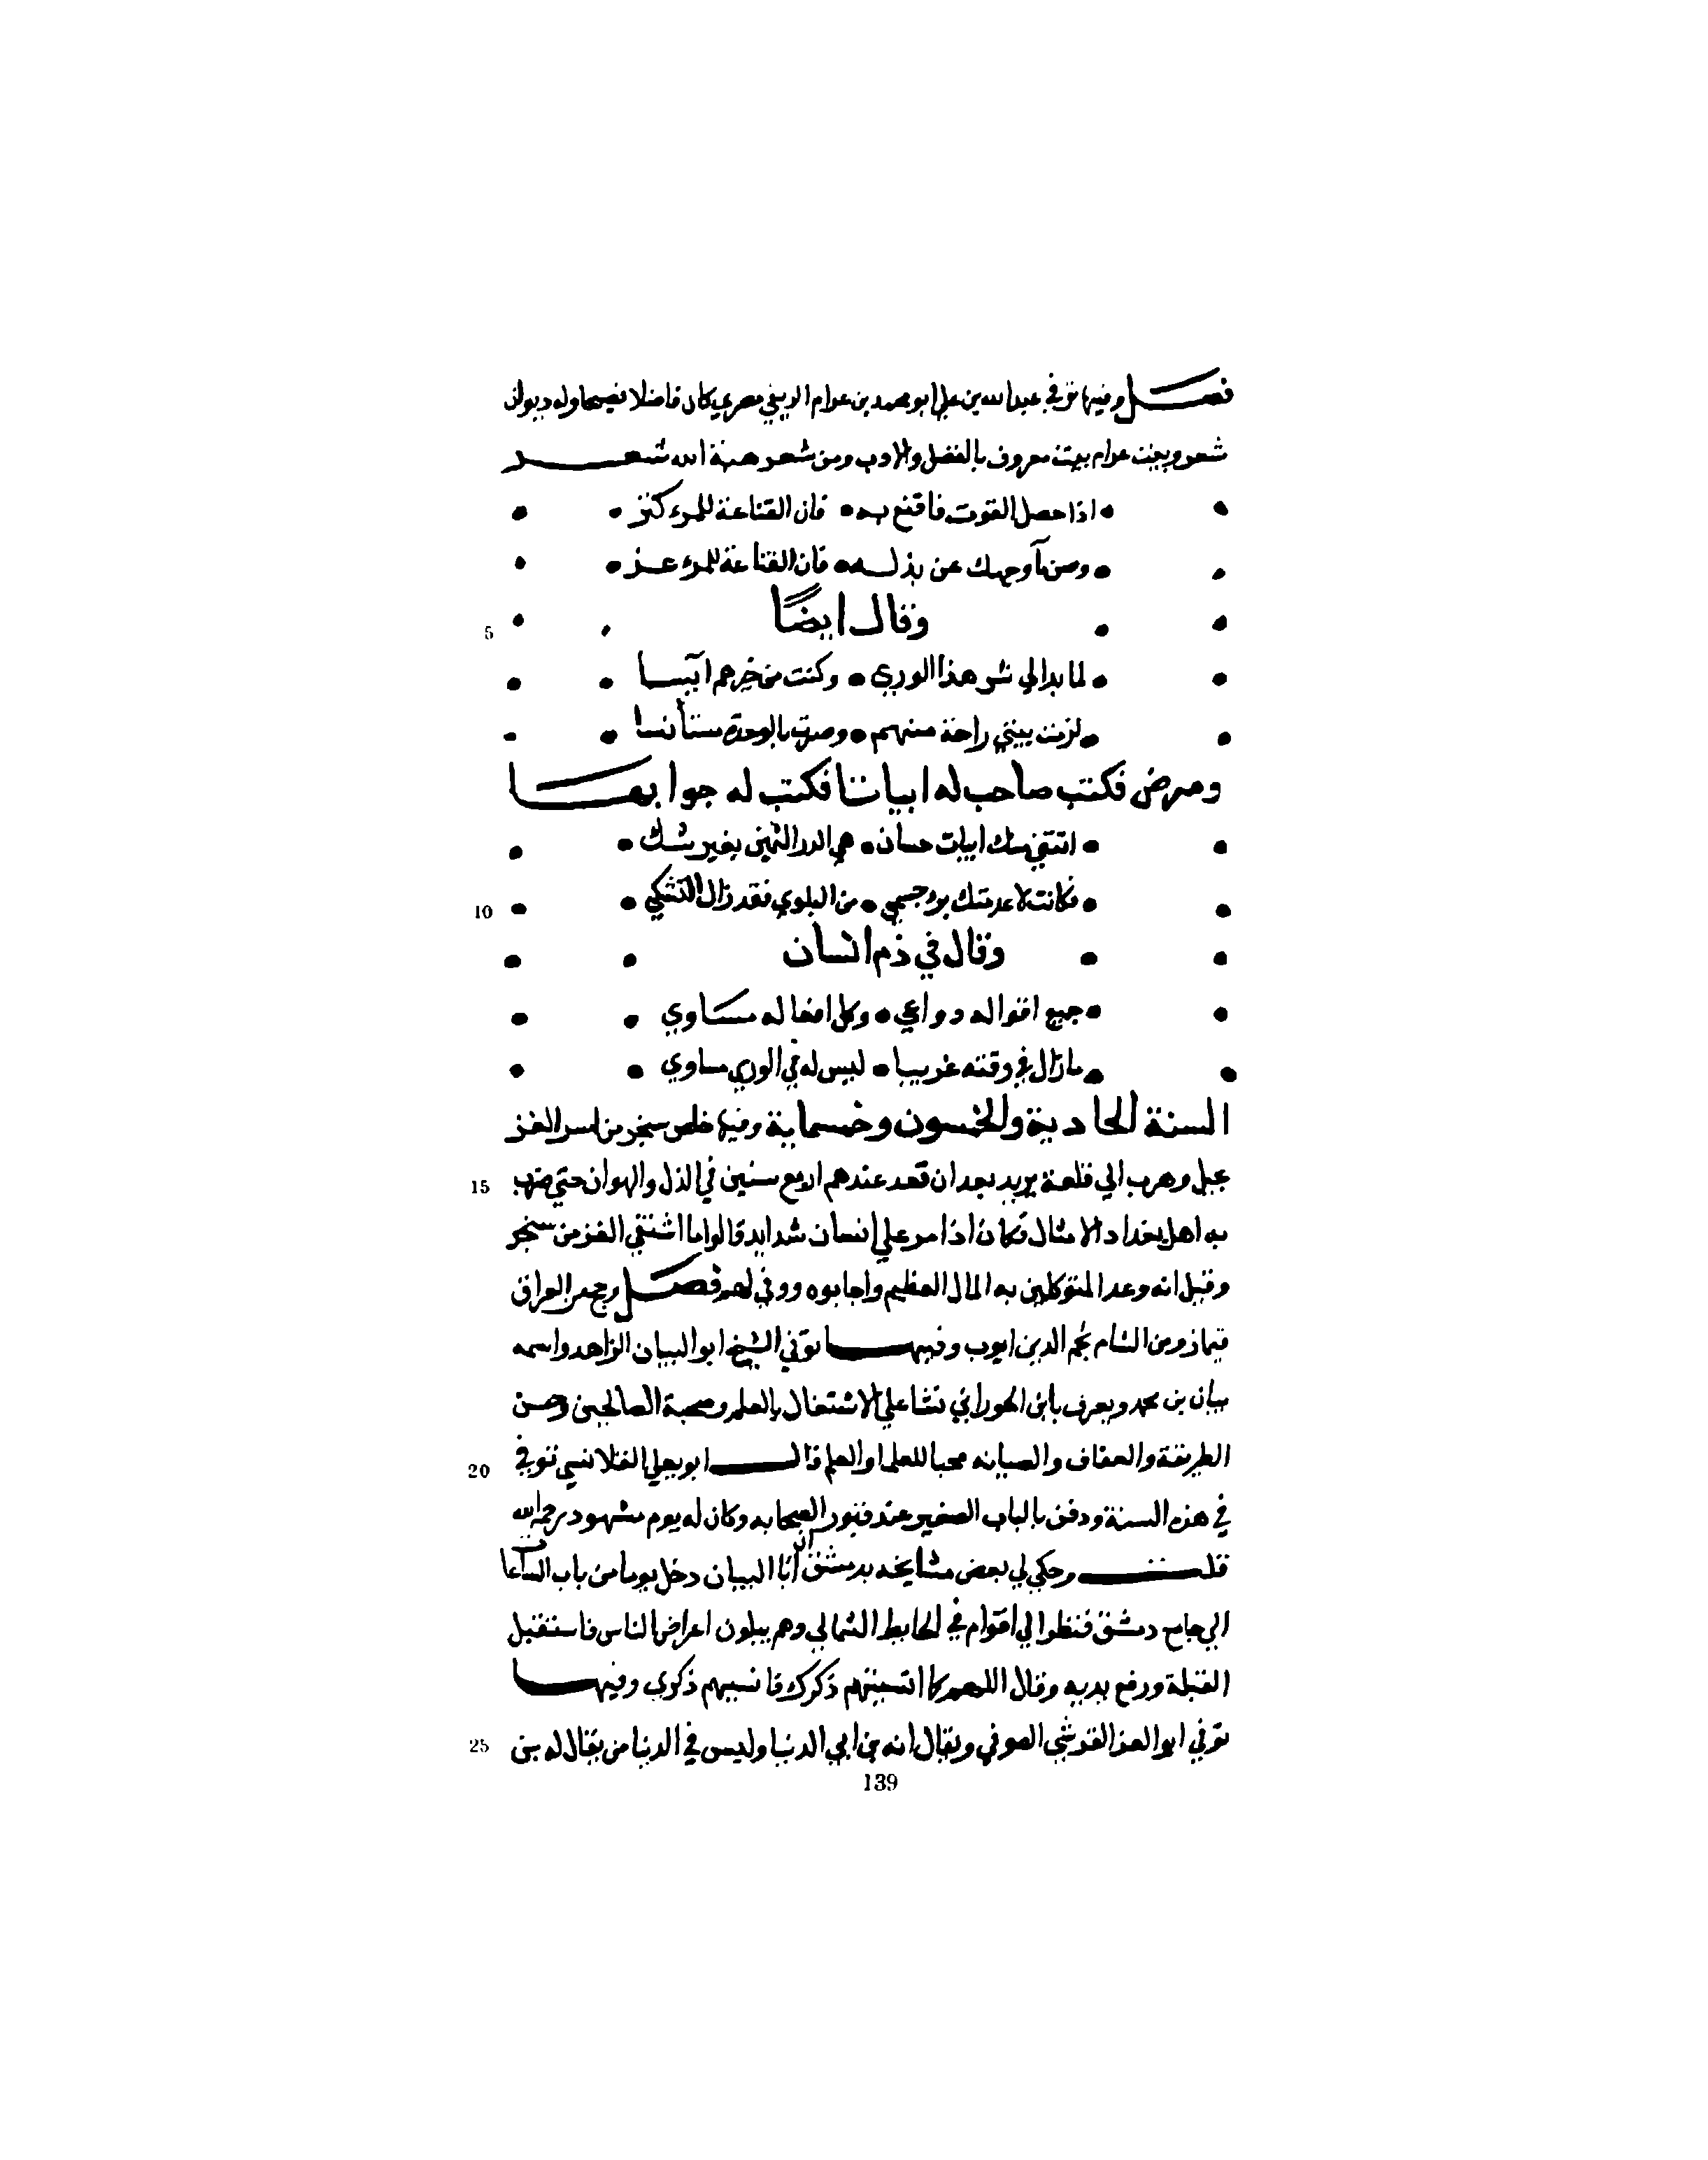 فصل وفيها توفي عبد الله بن علي ابو محمد بن عوام الريفي مصري كان فاضلا فصيحا وله ديوان
شعر وبيت عوام بيت معروف بالفضل والادب ومن شعر هبة الله شعر
• اذا حصل القوت فاقنع به • فان القناعة للمرء كنز •
• وصن مآ وجهك عن بذله • فان القناعة للمرء عز •
5 وقال ايضًا
• لما بدا لي شر هذا الوري • وكنت من خيرهم آيسا •
• لزمت بيتي راحة منهم • وصرت بالوحدة مستأنسا •
ومرض فكتب صاحب له ابياتا فكتب له جوابها
• اتتني منك ابيات حسان • هي الدر الثمين بغير شك •
10 • فكانت لا عدمتك برء جسمي • من البلوي فقد زال التشكي •
وقال في ذم انسان
• جميع اقواله دواعي • وكل افعاله مساوي •
• ما زال في وقته غريبا • ليس له في الوري مساوي •
السنة الحادية والخمسون وخمسماية وفيها خلص سنجر من اسر الغز
15 بحيل وهرب الي قلعة بعد ان قعد عندهم اربع سنين في الذل والهوان حتي ضرب
به اهل بغداد الامثال فكان اذا مر علي انسان شدايد قالوا ما اشتفي الغز من سنجر
وقيل انه وعد المتوكلين به المال العظيم واجابوه ووفي لهم فصل وحج من العراق
قيماز ومن الشام نجم الدين ايوب وفيها توفي الشيخ ابو البيان الزاهد واسمه
بيان بن محمد ويعرف بابن الحوراني نشا علي الاشتغال بالعلم وصحبة الصالحين وحسن
20 الطريقة والعفاف والصيانه محبا للعلم والعلما قال ابو يعلي القلانسي توفي
في هذه السنة ودفن بالباب الصغير عند قبور الصحابه وكان له يوم مشهود رحمه الله
قلت وحكي لي بعض مشايخه بدمشق ان ابا البيان دخل يوما من باب الساعات
الي جامع دمشق فنظر الي اقوام في الحايط الشمالي وهم يثلبون اعراض الناس فاستقبل
القبلة ورفع يديه وقال اللهم كما انسيتهم ذكرك فانسيهم ذكري وفيها
25 توفي ابو العز القرشي الصوفي ويقال انه من ابي الدنيا وليس في الدنيا من يقال له بن
139